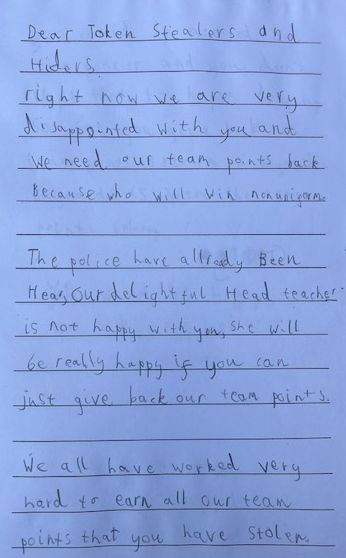 Dear Token Stealers and
Hiders.
right now we are very
disappointed with you and
we need our team points back
because who will win nonunigorm.
The police have allready Been
Hear, Our delightful Head teacher
is not happy with you, She will
be really happy if you can
just give back our team points.
We all have worked very
hard to earn all our team
points that you have stolen.